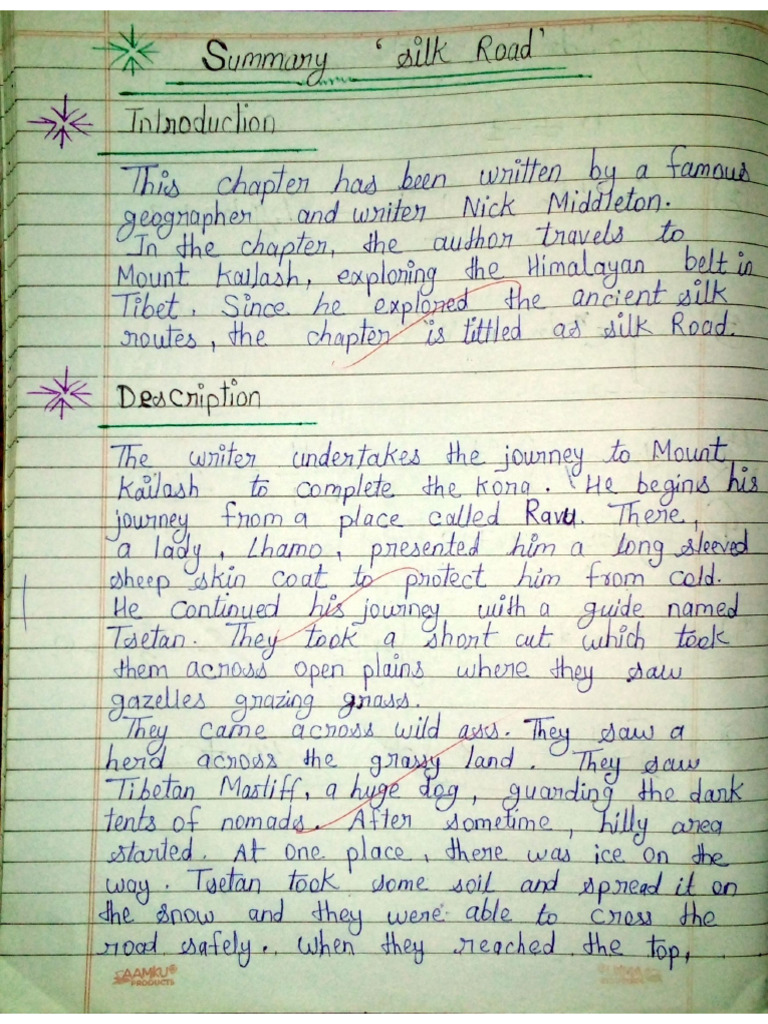 Summary 'Silk Road'
Introduction
This chapter has been written by a famous
geographer and writer Nick Middleton.
In the chapter, the author travels to
Mount Kailash, exploring the Himalayan belt in
Tibet. Since he explored the ancient silk
routes, the chapter is tittled as silk Road.
Description
The writer undertakes the journey to Mount
Kailash to complete the Kora. He begins his
journey from a place called Ravu. There,
a lady, Lhamo, presented him a long sleeved
sheep skin coat to protect him from cold.
He continued his journey with a guide named
Tsetan. They took a short cut which took
them across open plains where they saw
gazelles grazing grass.
They came across wild ass. They saw a
herd across the grassy land. They saw
Tibetan Mastiff, a huge dog, guarding the dark
tents of nomads. After sometime, hilly area
started. At one place, there was ice on the
way. Tsetan took some soil and spread it on
the snow and they were able to cross the
road safely. When they reached the top,
AAMKU
PRODUCTS